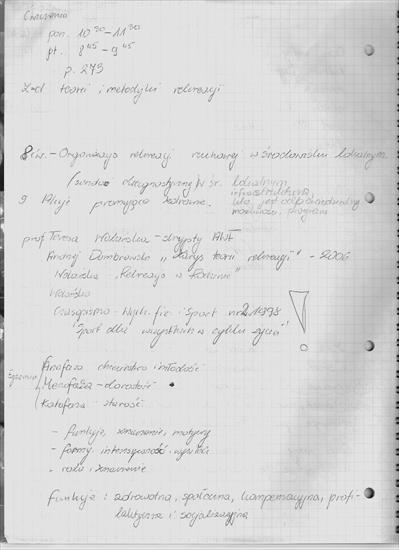 Ćwiczenia
pon. 10³⁰-11³⁰
pt. 8⁴⁵-9⁴⁵
p. 273
Z-d teorii i metodyki rekreacji
8 ćw. - Organizacja rekreacji ruchowej w środowisku lokalnym
/sondaż diagnostyczny/ w śr. lokalnym
infrastruktura,
kto jest odpowiedzialny
możliwości, program
9 Akcje promujące zdrowie.
prof Teresa Wolańska - skrypty AWF
Andrzej Dąbrowski „Zarys teorii rekreacji" - 2006
Wolańska „Rekreacja w Rodzinie"
Wolańska
Czasopismo - Wych. fiz i Sport nr 2 1998
"Sport dla wszystkich w cyklu życia" !
Egzamin
Anafaza dzieciństwo i młodość
Mezofaza - dorosłość
Katafaza - starość
- funkcje, znaczenie, motywy
- formy, intensywność, wysiłki
- rola i znaczenie
funkcje: zdrowotna, społeczna, kompensacyjna, profi-
laktyczna i socjalizacyjna